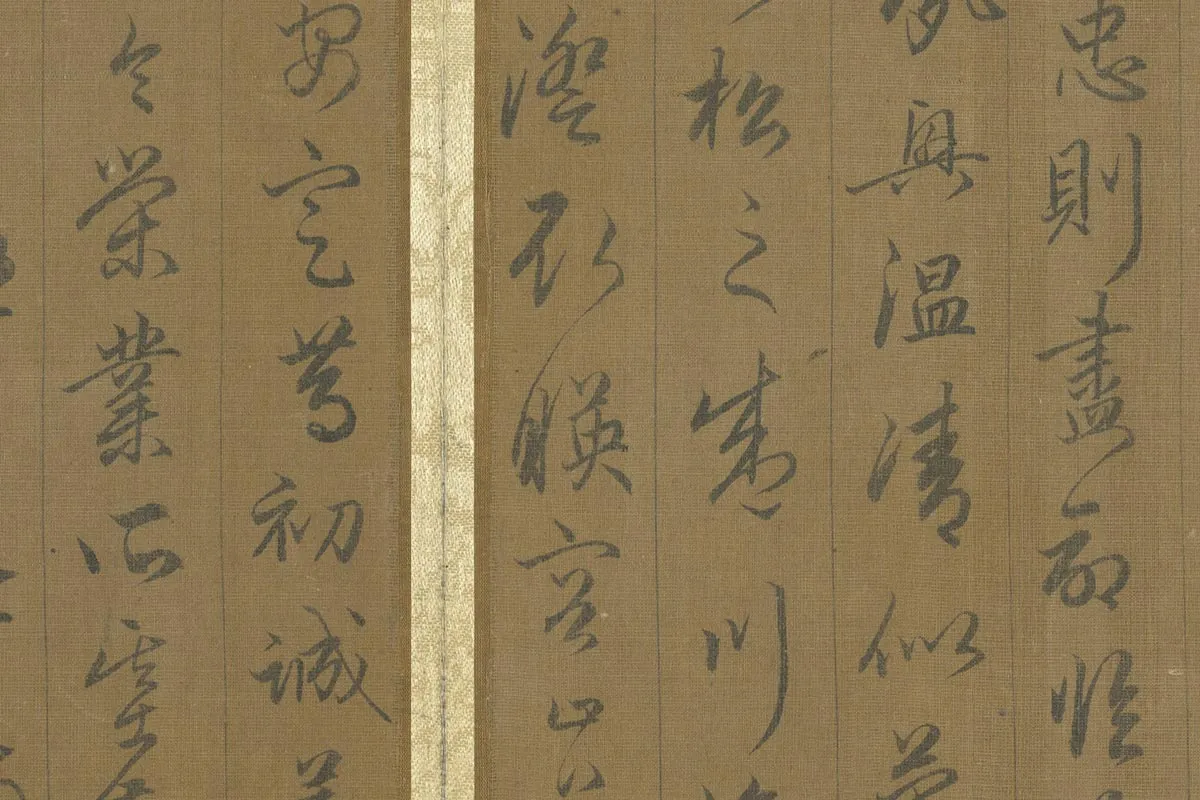 忠則盡命臨
夙興溫清似蘭
松之盛川
澄取暎容止
安定篤初誠美
令榮業所基